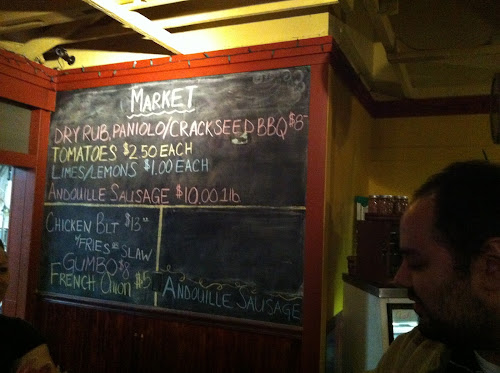 MARKET
DRY RUB, PANIOLO/CRACKSEED BBQ $8-
TOMATOES $2.50 EACH
LIMES/LEMONS $1.00 EACH
ANDOUILLE SAUSAGE $10.00 lb
CHICKEN BLT $13
W/FRIES SLAW
GUMBO $8
FRENCH ONION $5
ANDOUILLE SAUSAGE